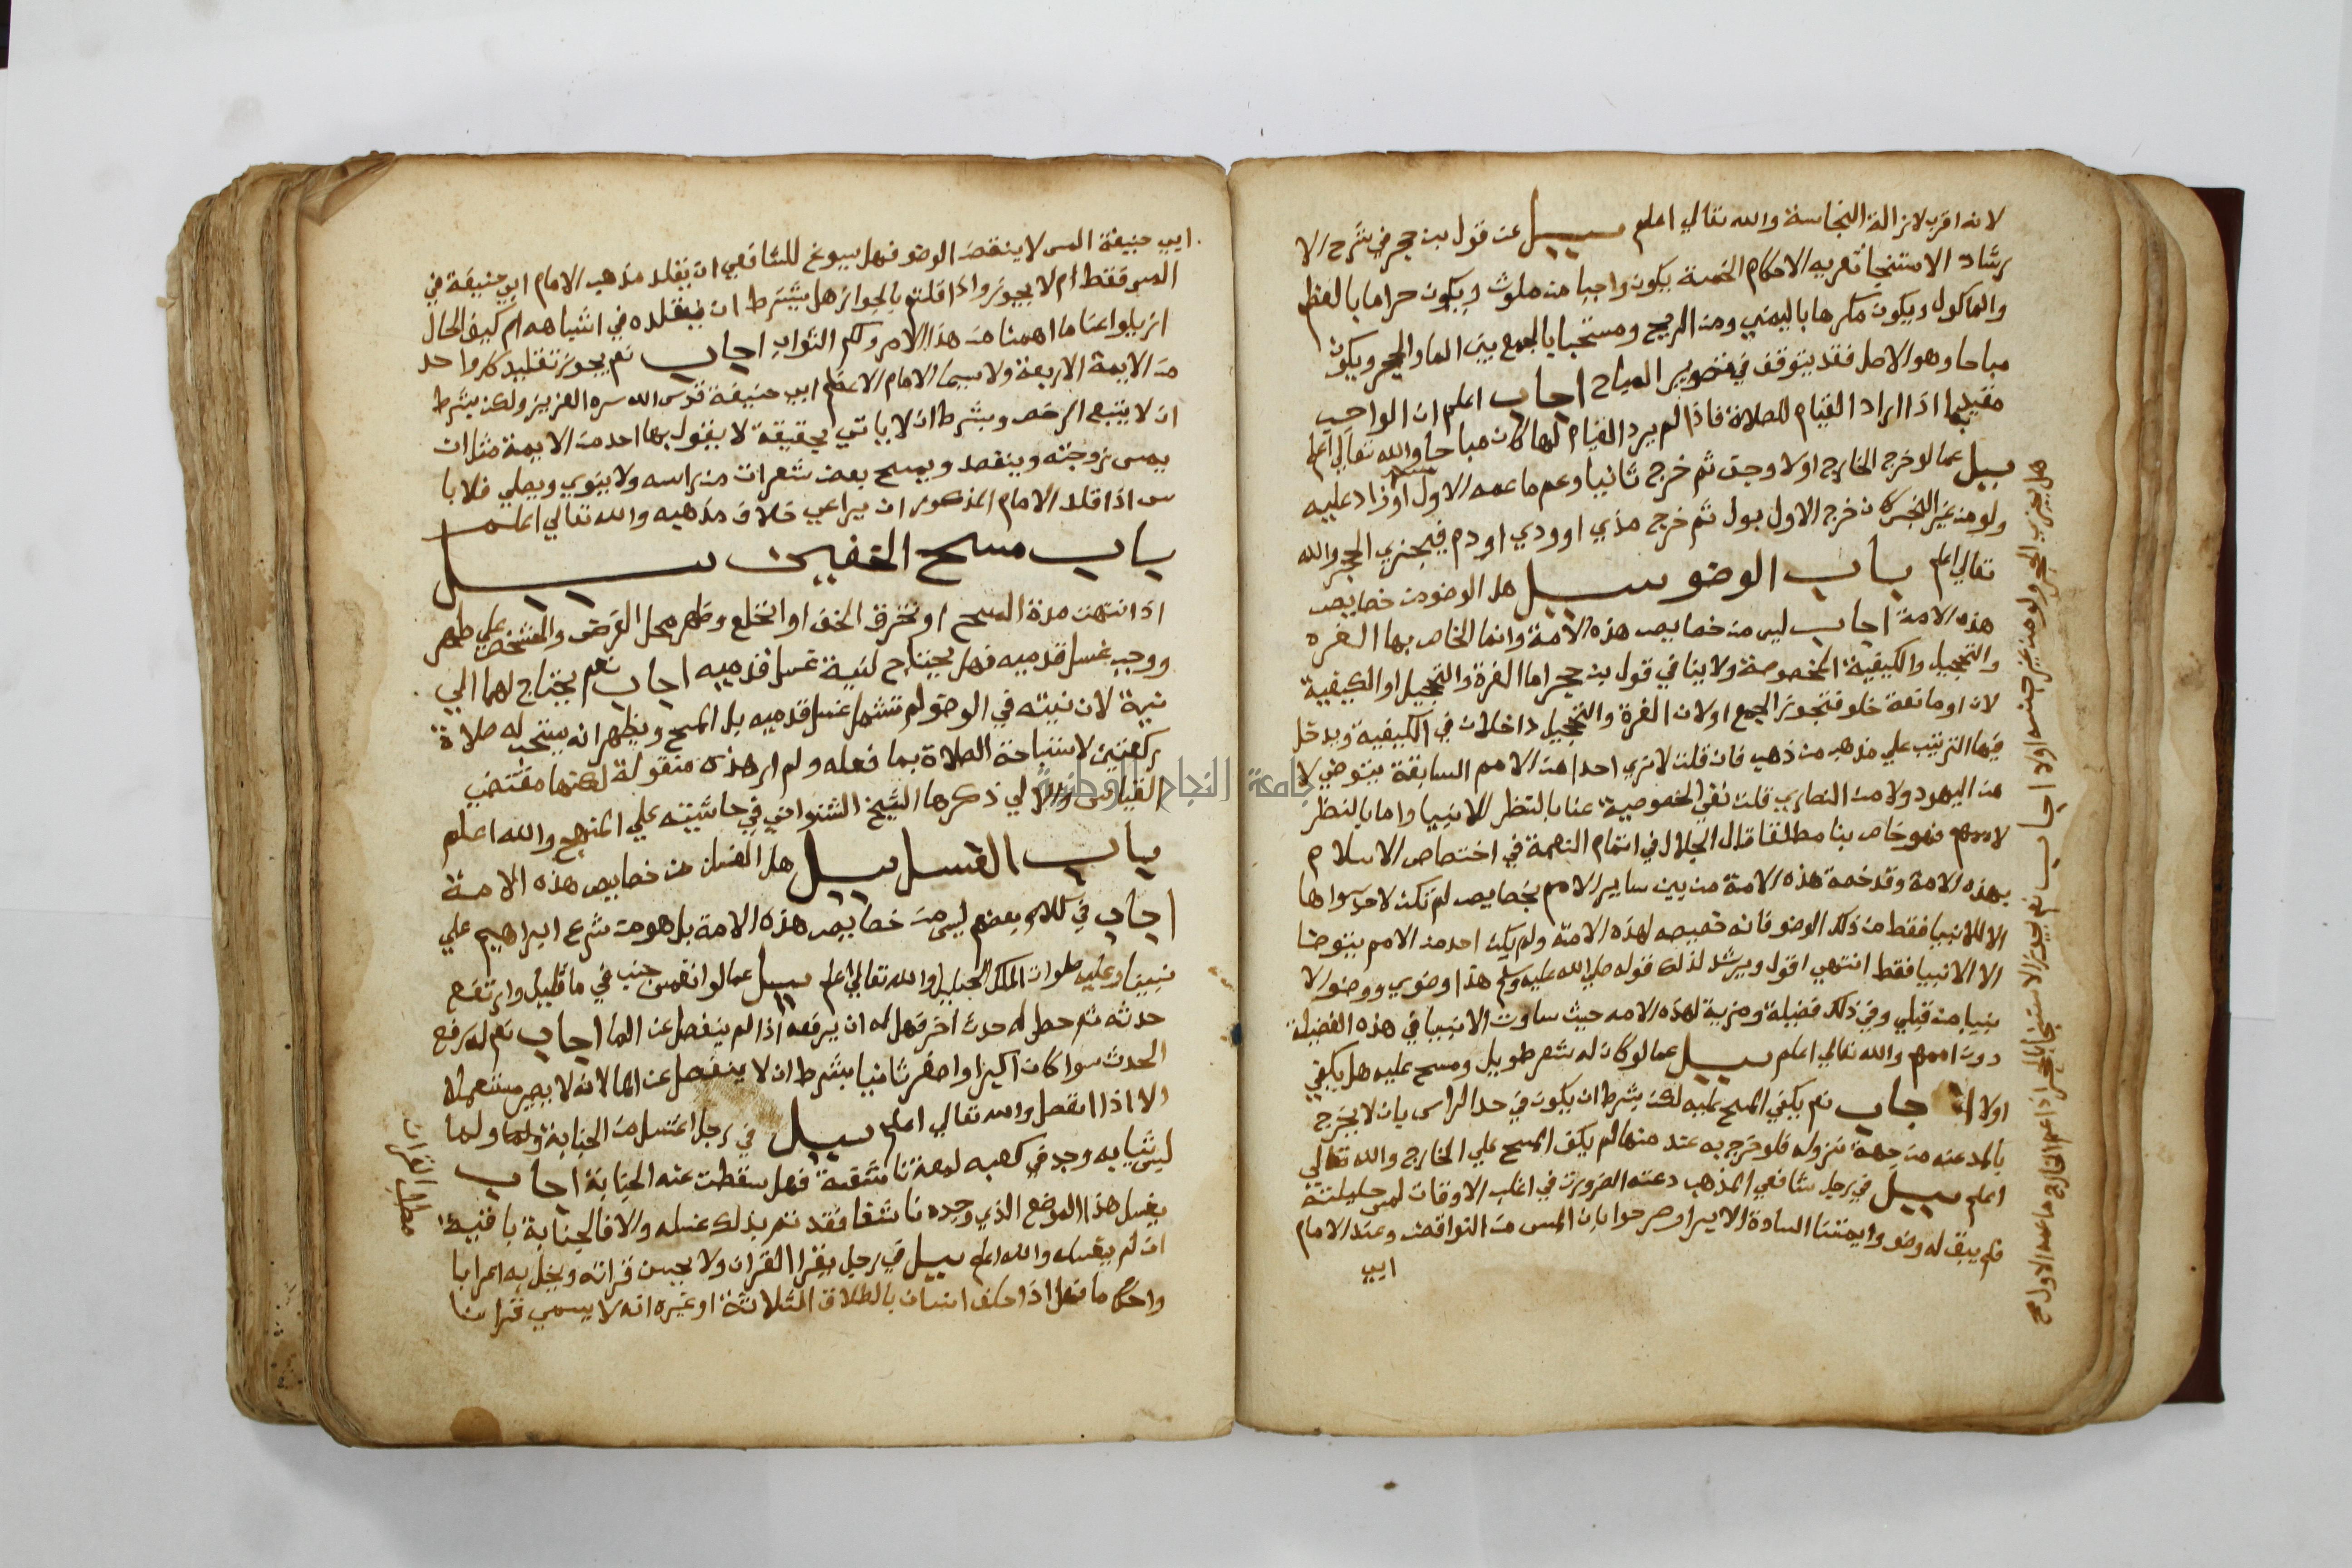 لانه اقرب لازالة النجاسة والله تعالي اعلم سيل عن قول بن حجر في شرح الا
رشاد الاستنجا تعريه الاحكام الخمسة يكون واجبا من ملوث ويكون حراما بالعظم
والماكول ويكون مكرها باليمني ومن الريح ومستحبا بالجمع بين الما والحجر ويكون
مباحا وهو الاصل فقد يتوقف في تصوير المباح اجاب اعلم ان الواجب
مقيد بما اذا اراد القيام للصلاة فاذا لم يرد القيام لها كان مباحا والله تعالي اعلم
سيل عما لو خرج الخارج اولا وجف ثم خرج ثانيا وعم ما عمه الاول او زاد عليه
ولو من غير الجنس كان خرج الاول بول ثم خرج مذي او ودي او دم فيجزي الحجر والله
تعالي اعلم باب الوضو سيل هل الوضو من خصايص
هذه الامة اجاب ليس من خصايص هذه الامة وانما الخاص بها الغره
والتحجيل والكيفية المخصوصة ولا ينافي قول بن حجر اما الغرة والتحجيل او الكيفية
لان او مانعة خلو فتجوز الجمع او لان الغرة والتحجيل داخلان في الكيفية ويدخل
فيها الترتيب علي مذهب من ذهب فان قلت لا نري احدا من الامم السابقة يتوضي لا
من اليهود ولا من النصاري قلت نفي الخصوصية عنا بالنظر للانبيا واما بالنظر
لاممهم فهو خاص بنا مطلقا قال الجلال في اتمام النعمة في اختصاص الاسلام
بهذه الامة وقد خصه هذه الامة من بين ساير الامم بخصايص لم تكن لاحد سواها
الا للانبيا فقط من ذلك الوضو فانه خصيصه لهذه الامة ولم يكن احد من الامم يتوضا
الا الانبيا فقط انتهي اقول ويرشد لذلك قوله صلي الله عليه وسلم هذا وضوي ووضو الا
نبيا من قبلي وفي ذلك فضيلة ومزية لهذه الامه حيث ساوت الانبيا في هذه الفضيلة
دون اممهم والله تعالي اعلم سيل عما لو كان له شعر طويل ومسح عليه هل يكفي
اولا اجاب نعم يكفي المسح عليه لكن يشرط ان يكون في حد الراس بان لا يخرج
بالمد عنه من جهة نزوله فلو خرج به عند منها لم يكف المسح علي الخارج والله تعالي
اعلم سيل في رجل شافعي المذهب دعته الضرورت في اغلب الاوقات لمس حليلته
فلم يبق له وضو وايمتنا السادة الاسيرا وصرحوا بان المس من النواقض وعند الامام
ابي
هل يجزي الحجر ولو من غير جنسه او لا اجاب نعم يجوز الاستنجا بالحجر اذا عم الخارج ما عمه الاول صح
ابي حنيفة المس لا ينقض الوضو فهل يسوغ للشافعي ان يقلد مذهب الامام ابي حنيفة في
المس فقط ام لا يجوز واذا قلتم بالجواز هل يشترط ان يقلده في اشياهه ام كيف الحال
ازيلوا عنا ما اهمنا من هذا الامر ولكم الثواب اجاب نعم يجوز تقليد كل واحد
من الايمة الاربعة ولا سيما الامام الاعظم ابي حنيفة قدس الله سره العزيز ولكن بشرط
ان لا يتبع الرخص وبشرط ان لا ياتي بحقيقة لا يقول بها احد من الايمة مثل ان
يمس زوجته ويفصد ويمسح بعض شعرات من راسه ولا ينوي ويصلي فلا با
س اذا قلد الامام المذكور ان يراعي خلاف مذهبه والله تعالي اعلم
باب مسح الخفين سيل
اذا انتهت مدة المسح او تخرق الخف او انخلع وظهر محل الفرض والشخص علي طهر
ووجب غسل قدميه فهل يحتاج لنية غسل قدميه اجاب نعم يحتاج لهما الي
نية لان نيته في الوضو لم تشمل غسل قدميه بل المسح ويظهر انه يستحب له صلاة
ركعتين لاستباحة الصلاة بما فعله ولم ار هذه منقولة لكنها مقتضي
القياس والاولي ذكرها الشيخ الشنواني في حاشيته علي المنهج والله اعلم
باب الغسل سيل هل الغسل من خصايص هذه الامة
اجاب في كلام بعضهم ليس من خصايص هذه الامة بل هو من شرع ابراهيم علي
نبينا وعليه صلوات الملك الجليل والله تعالي اعلم سيل عما لو انغمس جنب في ما قليل وارتفع
حدثه ثم حصل له حدث اخر فهل له ان يرفعه اذا لم ينفصل عن الما اجاب نعم له رفع
الحدث سوا كان اكبر او اصغر ثانيا بشرط ان لا ينفصل عن الما لانه لا يصير مستعملا
الا اذا انفصل والله تعالي اعلم سيل في رجل اغتسل من الجنابة ولما
لبس ثيابه وجد في كعبه لمعة ناشفة فهل سقطت عنه الجنابة اجاب
يغسل هذا الموضع الذي وجده ناشفا فقد تم بذلك غسله والا فالجنابة باقية
ان لم يغسله والله اعلم سيل في رجل يقرا القران ولا يحسن قراته ويخل به اعرابا
واحكاما فهل اذا حلف انسان بالطلاق الثلاثة او غيره انه لا يسمي قرانا
مطلب القران
جامعة النجاح الوطنية